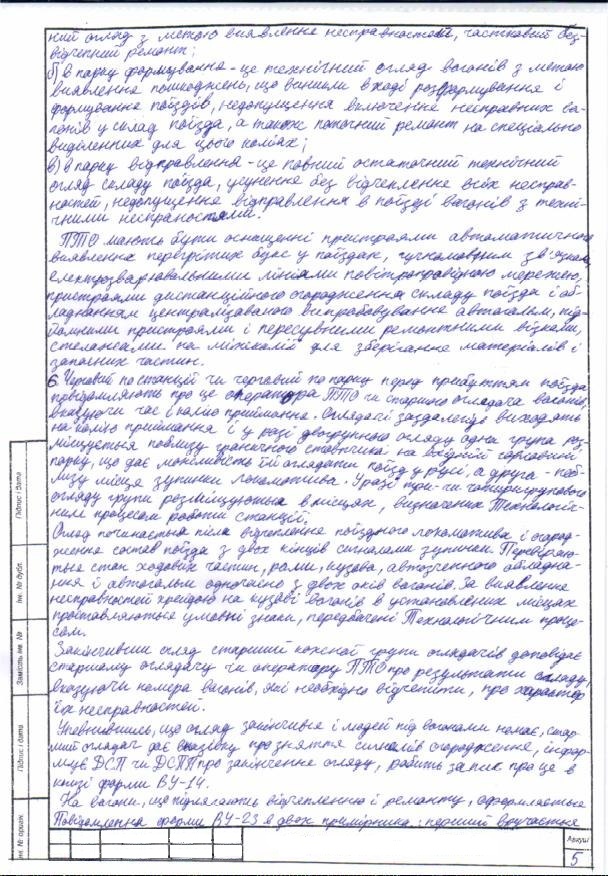 ний огляд з метою виявлення несправностей, частковий без-
відчепний ремонт;
б) в парку формування - це технічний огляд вагонів з метою
виявлення пошкоджень, що виникли в ході розформування і
формування поїздів, недопущення включення несправних ва-
гонів у склад поїзда, а також поточний ремонт на спеціально
виділенних для цього коліях;
в) в парку відправлення - це повний остаточний технічний
огляд складу поїзда, усунення без відчеплення всіх несправ-
ностей, недопущення відправлення в поїзді вагонів з техні-
чними несправностями.
ПТО мають бути оснащенні пристроями автоматичного
виявлення перегрітих букс у поїздах, гучномовним зв'язком,
електрозварювальними лініями повітропровідною мережею,
пристроями дистанційного огородження складу поїзда і об-
ладнанням централізованого випробовування автогальм, під-
йомними пристроями і пересувними ремонтними візками,
стелажами на міжколії для зберігання матеріалів і
запасних частин.
6. Черговий по станції чи черговий по парку перед прибуттям поїзда
повідомляють про це оператора ПТО чи старшого оглядача вагонів,
вказуючи час і колію приймання. Оглядачі заздалегідь виходять
на колію приймання і у разі двогрупного огляду одна група роз-
міщується поблизу граничного стовпчика на вхідній горловині
парку, що дає можливість їй оглядати поїзд у русі, а друга - поб-
лизу місця зупинки локомотива. У разі три- чи чотиригрупового
огляду групи розміщуються в місцях, визначених Технологіч-
ним процесом роботи станції.
Огляд починається після відчеплення поїздного локомотива і огород-
ження состав поїзда з двох кінців сигналами зупинки. Перевіряю-
ться стан ходових частин, рами, кузова, автозчепного обладна-
ння і автогальм одночасно з двох боків вагонів. За виявлення
несправностей крейдою на кузові вагонів в установлених місцях
проставляються умовні знаки, передбачені Технологічним проце-
сом.
Закінчивши огляд старший кожної групи оглядачів доповідає
старшому оглядачу чи оператору ПТО про результати огляду,
вказуючи номера вагонів, які необхідно відчепити, про характер
їх несправностей.
Упевнившись, що огляд закінчився і людей під вагонами немає, стар-
ший оглядач дає вказівку про зняття сигналів огородження, інфор-
мує ДСП чи ДСПП про закінчення огляду, робить запис про це в
книзі форми ВУ-14.
На вагони, що підлягають відчепленню і ремонту, оформляється
Повідомлення форми ВУ-23 в двох примірниках: перший вручається
Підпис і дата
Інв. № дубл.
Замість інв. №
Підпис і дата
Інв. № оригін.
Аркуш
5